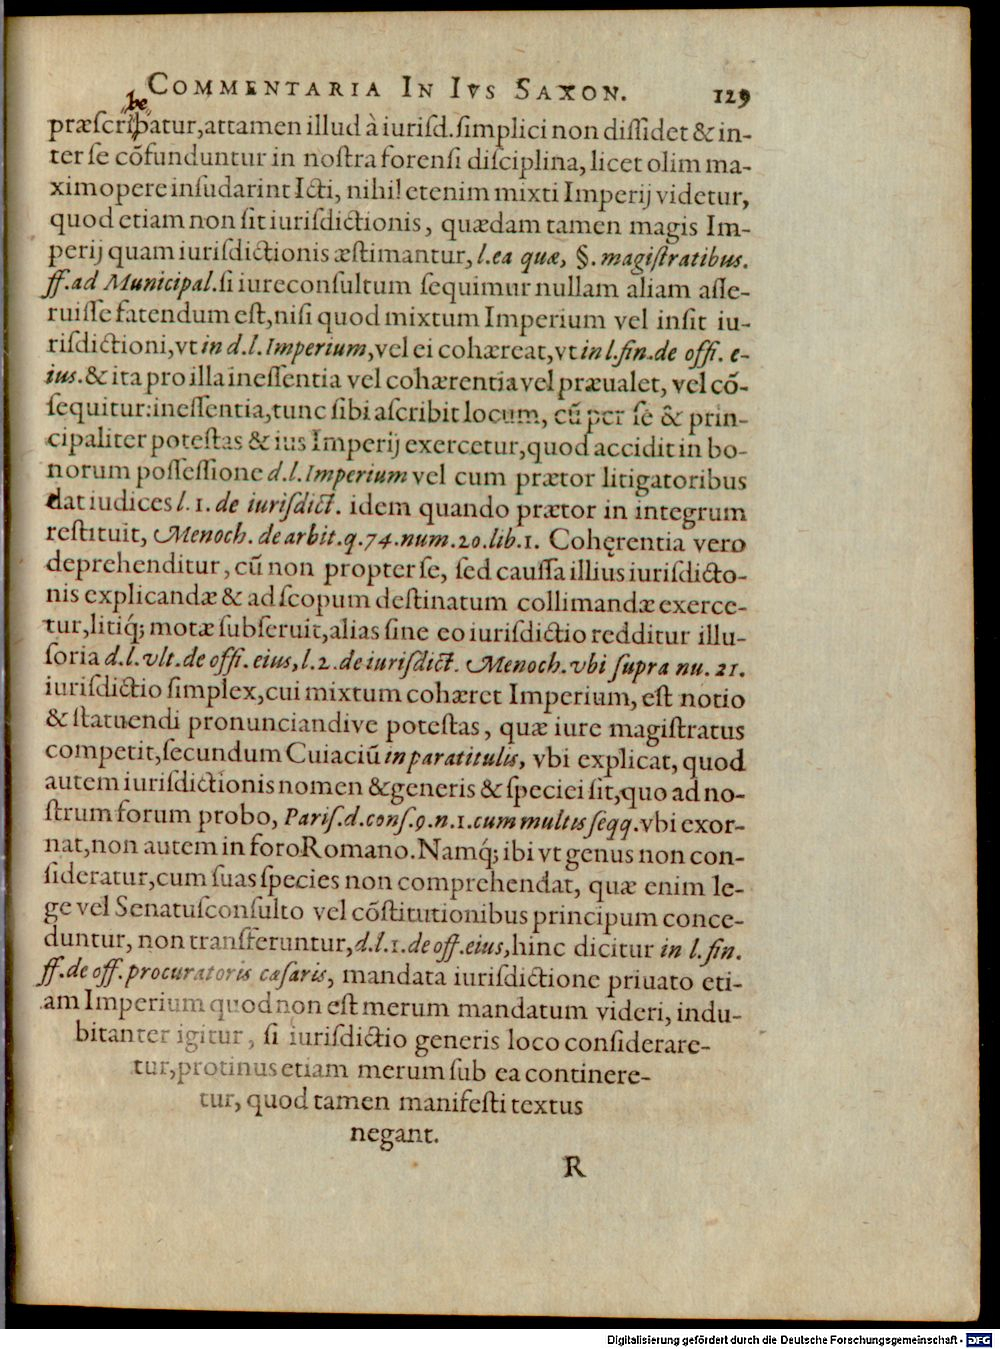 COMMENTARIA IN IVS SAXON. 129
be
præſcribatur, attamen illud à iuriſd. ſimplici non diſſidet & in-
ter ſe cõfunduntur in noſtra forenſi diſciplina, licet olim ma-
ximopere inſudarint Icti, nihil etenim mixti Imperij videtur,
quod etiam non ſit iuriſdictionis, quædam tamen magis Im-
perij quam iuriſdictionis æſtimantur, l. ea quæ, §. magiſtratibus.
ff. ad Municipal. ſi iureconſultum ſequimur nullam aliam aſſe-
ruiſſe fatendum eſt, niſi quod mixtum Imperium vel inſit iu-
riſdictioni, vt in d. l. Imperium, vel ei cohæreat, vt in l. fin. de offi. e-
ius. & ita pro illa ineſſentia vel cohærentia vel præualet, vel cõ-
ſequitur: ineſſentia, tunc ſibi aſcribit locum, cũ per ſe & prin-
cipaliter poteſtas & ius Imperij exercetur, quod accidit in bo-
norum poſſeſſione d. l. Imperium vel cum prætor litigatoribus
dat iudices l. 1. de iuriſdict. idem quando prætor in integrum
reſtituit, Menoch. de arbit. q. 74. num. 20. lib. 1. Cohęrentia vero
deprehenditur, cũ non propter ſe, ſed cauſſa illius iuriſdicto-
nis explicandæ & ad ſcopum deſtinatum collimandæ exerce-
tur, litiq́; motæ ſubſeruit, alias ſine eo iuriſdictio redditur illu-
ſoria d. l. vlt. de offi. eius, l. 2. de iuriſdict. Menoch. vbi ſupra nu. 21.
iuriſdictio ſimplex, cui mixtum cohæret Imperium, eſt notio
& ſtatuendi pronunciandive poteſtas, quæ iure magiſtratus
competit, ſecundum Cuiaciũ in paratitulis, vbi explicat, quod
autem iuriſdictionis nomen & generis & ſpeciei ſit, quo ad no-
ſtrum forum probo, Pariſ. d. conſ. 9. n. 1. cum multis ſeqq. vbi exor-
nat, non autem in foro Romano. Namq́; ibi vt genus non con-
ſideratur, cum ſuas ſpecies non comprehendat, quæ enim le-
ge vel Senatuſconſulto vel cõſtitutionibus principum conce-
duntur, non transferuntur, d. l. 1. de off. eius, hinc dicitur in l. fin.
ff. de off. procuratoris cæſaris, mandata iuriſdictione priuato eti-
am Imperium quod non eſt merum mandatum videri, indu-
bitanter igitur, ſi iuriſdictio generis loco conſiderare-
tur, protinus etiam merum ſub ea contineré-
tur, quod tamen manifeſti textus
negant.
R
Digitalisierung gefördert durch die Deutsche Forschungsgemeinschaft - DFG